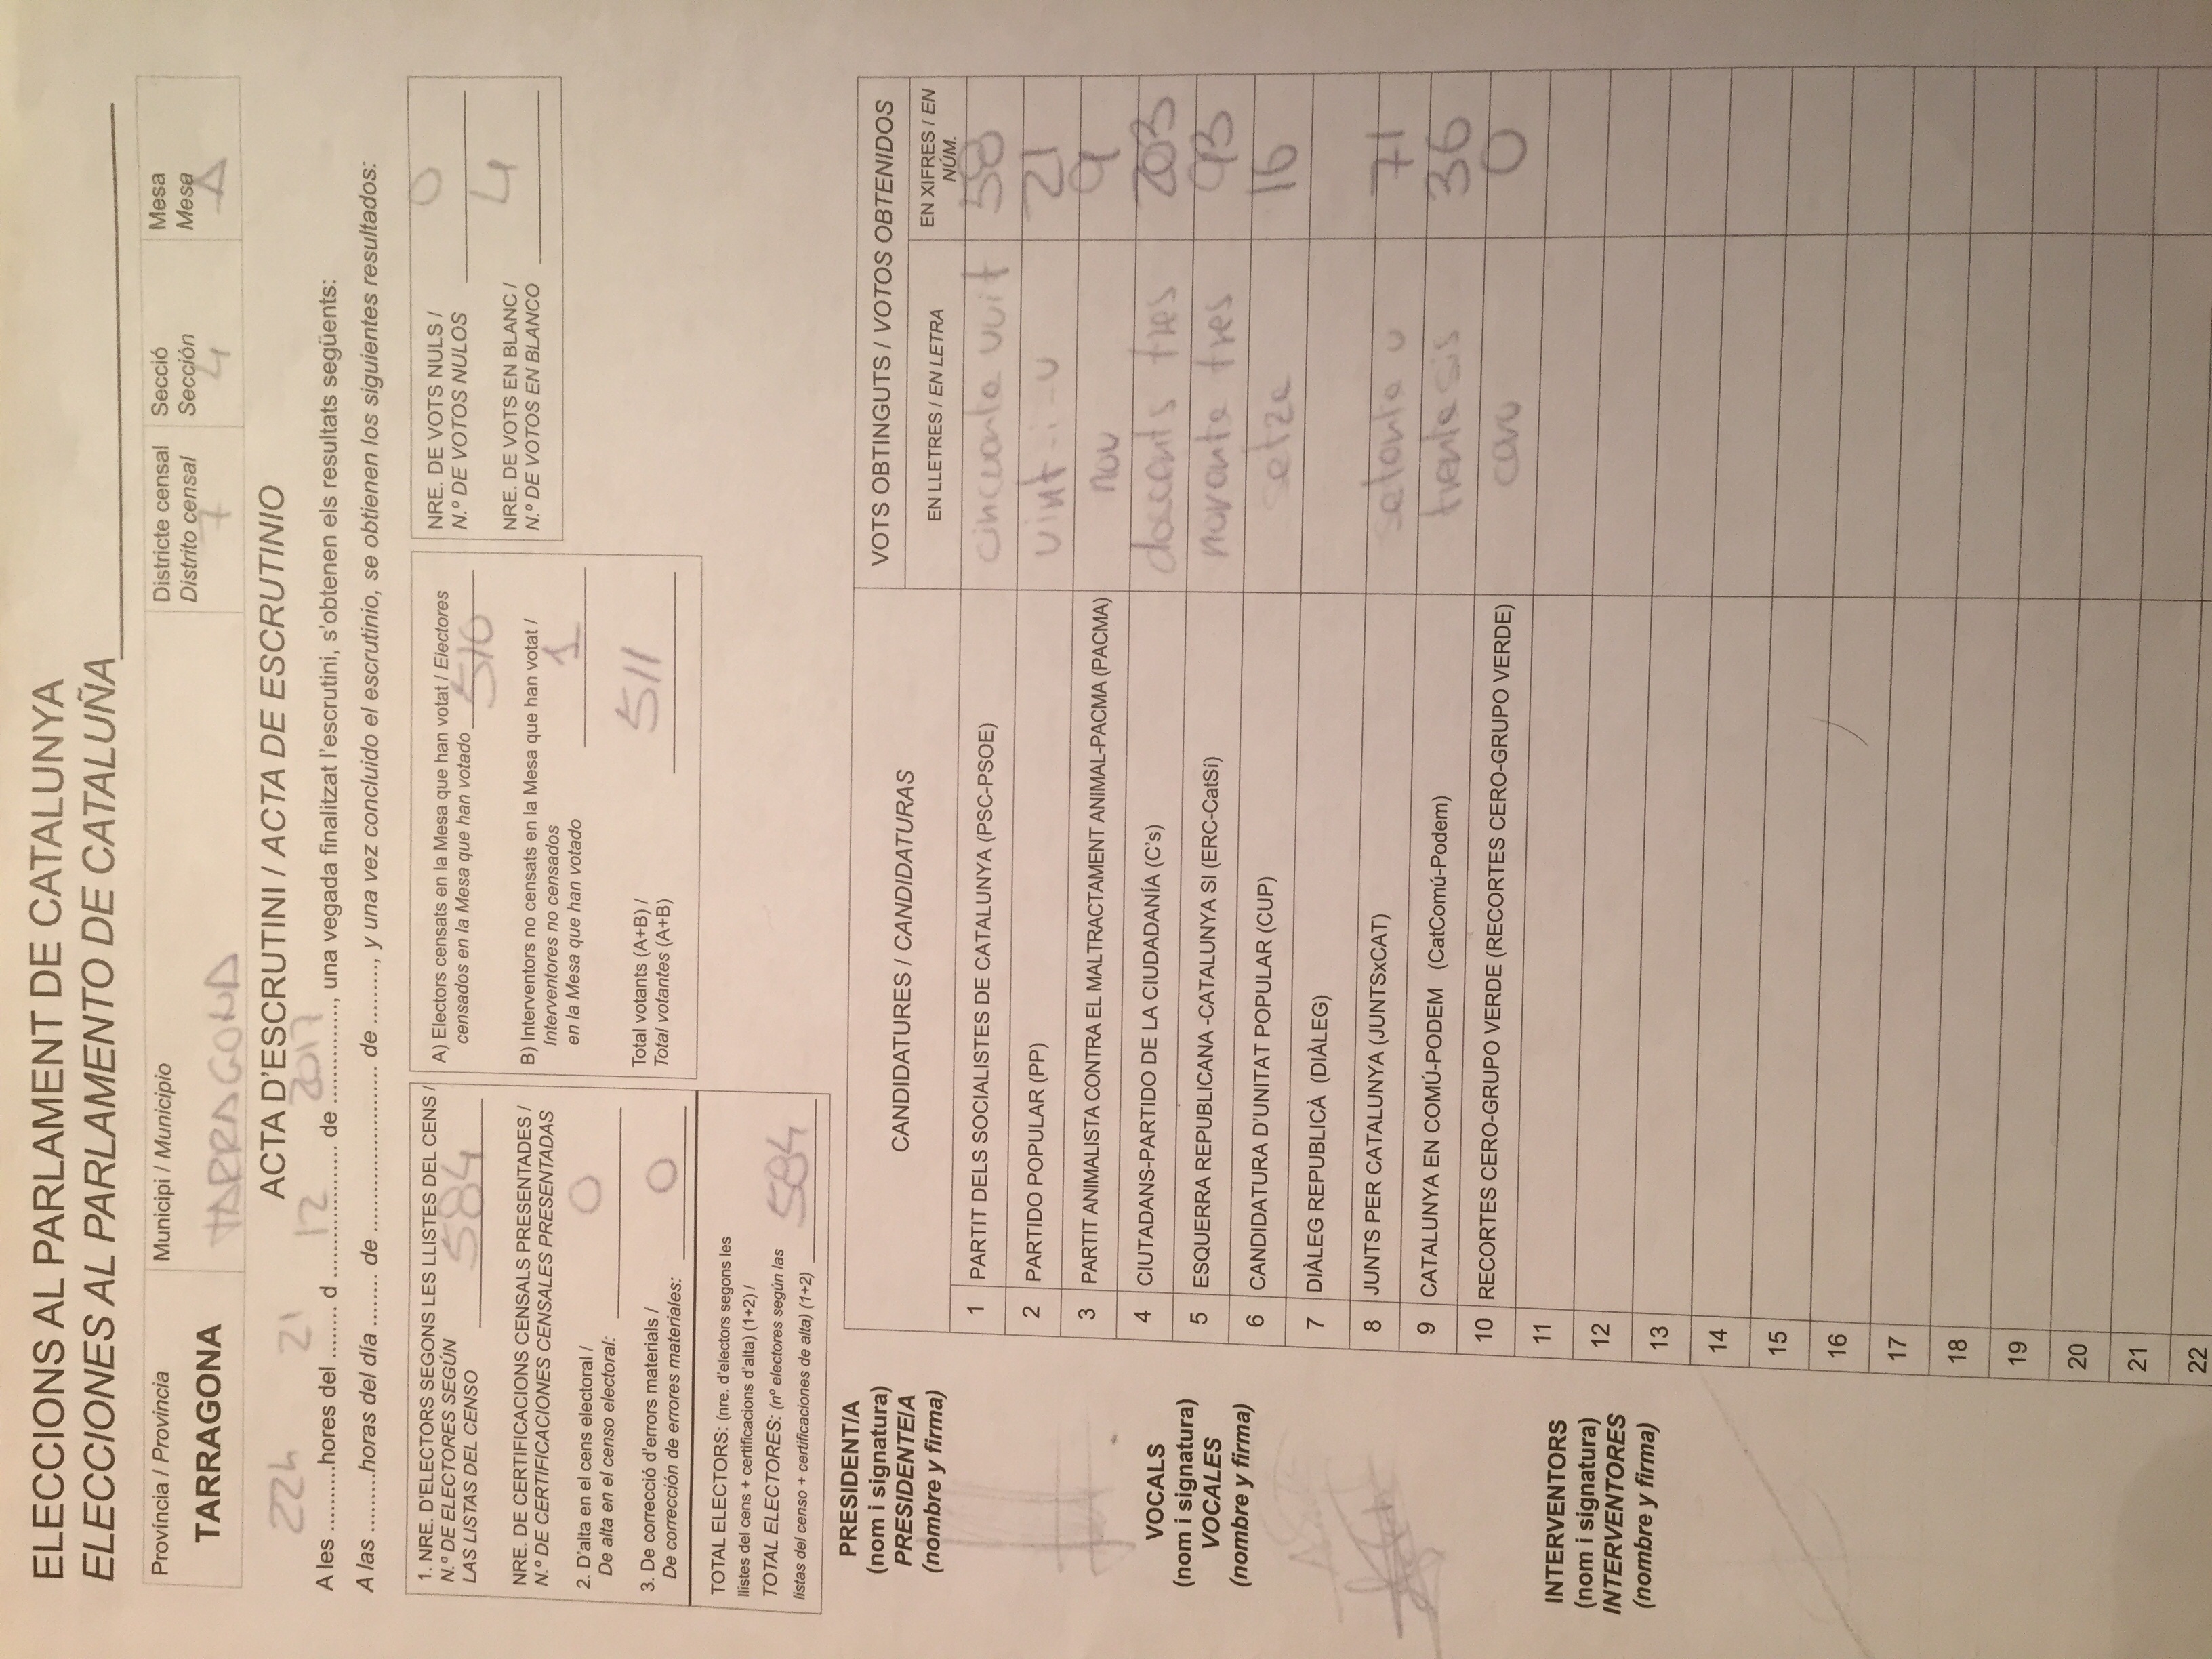 ELECCIONS AL PARLAMENT DE CATALUNYA
ELECCIONES AL PARLAMENTO DE CATALUÑA
Província / Provincia
TARRAGONA
Municipi / Municipio
TARRAGONA
Districte censal
Distrito censal
7
Secció
Sección
4
Mesa
Mesa
A
ACTA D'ESCRUTINI / ACTA DE ESCRUTINIO
22h 21 12 2017
A les ..........hores del ........ d .................... de ..............., una vegada finalitzat l'escrutini, s'obtenen els resultats següents:
A las .........horas del día ........ de ......................... de ........., y una vez concluido el escrutinio, se obtienen los siguientes resultados:
1. NRE. D'ELECTORS SEGONS LES LLISTES DEL CENS /
N.º DE ELECTORES SEGÚN
LAS LISTAS DEL CENSO 584
NRE. DE CERTIFICACIONS CENSALS PRESENTADES /
N.º DE CERTIFICACIONES CENSALES PRESENTADAS
2. D'alta en el cens electoral /
De alta en el censo electoral: 0
3. De correcció d'errors materials /
De corrección de errores materiales: 0
TOTAL ELECTORS: (nre. d'electors segons les
llistes del cens + certificacions d'alta) (1+2) /
TOTAL ELECTORES: (nº electores según las
listas del censo + certificaciones de alta) (1+2) 584
A) Electors censats en la Mesa que han votat / Electores
censados en la Mesa que han votado 510
B) Interventors no censats en la Mesa que han votat /
Interventores no censados
en la Mesa que han votado 1
Total votants (A+B) /
Total votantes (A+B) 511
NRE. DE VOTS NULS /
N.º DE VOTOS NULOS 0
NRE. DE VOTS EN BLANC /
N.º DE VOTOS EN BLANCO 4
PRESIDENT/A
(nom i signatura)
PRESIDENTE/A
(nombre y firma)
VOCALS
(nom i signatura)
VOCALES
(nombre y firma)
INTERVENTORS
(nom i signatura)
INTERVENTORES
(nombre y firma)
CANDIDATURES / CANDIDATURAS
VOTS OBTINGUTS / VOTOS OBTENIDOS
EN LLETRES / EN LETRA
EN XIFRES / EN
NÚM.
1 PARTIT DELS SOCIALISTES DE CATALUNYA (PSC-PSOE) cincuanta vuit 58
2 PARTIDO POPULAR (PP) vint-i-u 21
3 PARTIT ANIMALISTA CONTRA EL MALTRACTAMENT ANIMAL-PACMA (PACMA) nou 9
4 CIUTADANS-PARTIDO DE LA CIUDADANÍA (C's) doscents tres 203
5 ESQUERRA REPUBLICANA -CATALUNYA SI (ERC-CatSí) noranta tres 93
6 CANDIDATURA D'UNITAT POPULAR (CUP) setze 16
7 DIÀLEG REPUBLICÀ (DIÀLEG)
8 JUNTS PER CATALUNYA (JUNTSxCAT) setanta u 71
9 CATALUNYA EN COMÚ-PODEM (CatComú-Podem) trenta sis 36
10 RECORTES CERO-GRUPO VERDE (RECORTES CERO-GRUPO VERDE) 0
11
12
13
14
15
16
17
18
19
20
21
22